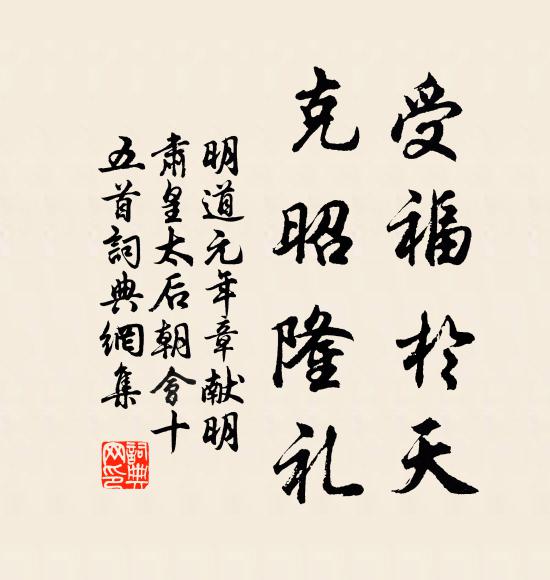 受福於天
克昭隆礼
明道元年章献明
肅皇太后朝會十
五首詞典網集
詞典
网印